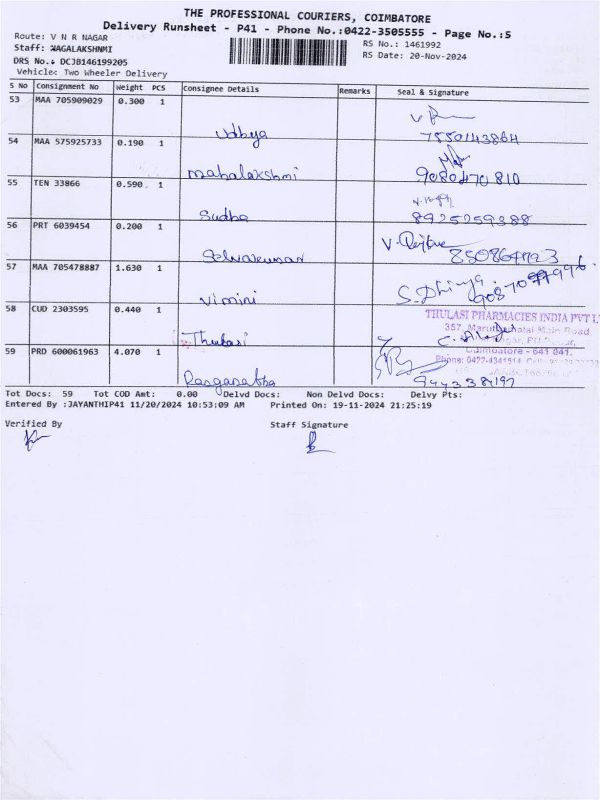 THE PROFESSIONAL COURIERS, COIMBATORE
Delivery Runsheet - P41 - Phone No.:0422-3505555 - Page No.:5
Route: V N R NAGAR
RS No.: 1461992
Staff: NAGALAKSHMI
RS Date: 20-Nov-2024
DRS No.: DCJB146199205
Vehicle: Two Wheeler Delivery
S No Consignment No Weight PCS Consignee Details Remarks Seal & Signature
53 MAA 705909029 0.300 1
7550143864
54 MAA 575925733 0.190 1
mahalakshmi 9080470810
55 TEN 33866 0.590 1
Sudha 8925259388
56 PRT 6039454 0.200 1
Selvakumar
57 MAA 705478887 1.630 1
Vimini S. Dhivya
58 CUD 2303595 0.440 1
THULASI PHARMACIES INDIA PVT
357, Main Road
Thulasi
Coimbatore - 641 041.
59 PRD 600061963 4.070 1
Phone: 0422-4341514
Tot Docs: 59 Tot COD Amt: 0.00 Delvd Docs: Non Delvd Docs: Delvy Pts:
Entered By :JAYANTHIP41 11/20/2024 10:53:09 AM Printed On: 19-11-2024 21:25:19
Verified By Staff Signature